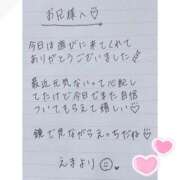 お兄様へ♡
今日は遊びに来てくれて
ありがとうございました
最近元気ないって心配し
てたけど今日でまた自信
ついてもらえて嬉しい♡
鏡で見ながらえっちだね
えまより